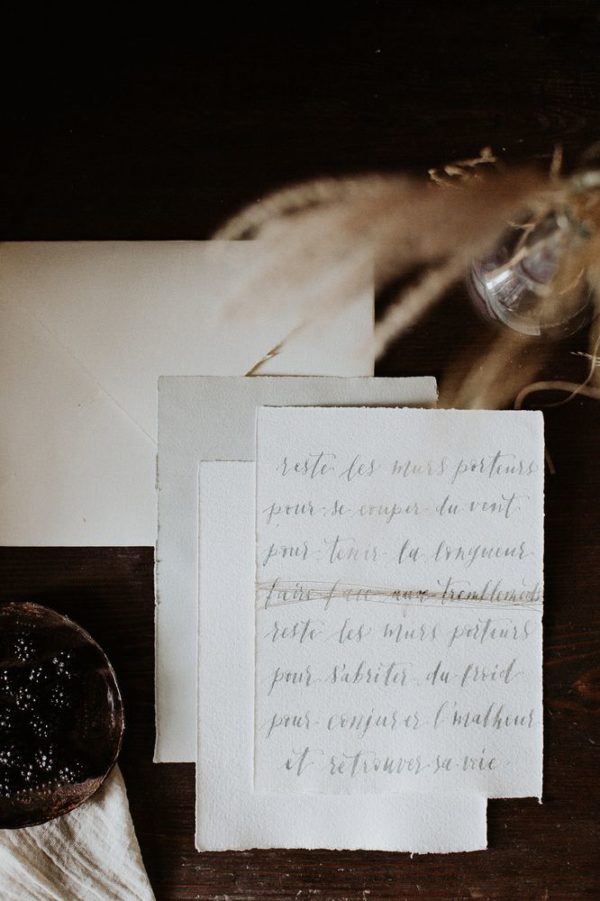 reste les murs porteurs
pour se couper du vent
pour tenir la longueur
faire face aux tremblements
reste les murs porteurs
pour s'abriter du froid
pour conjurer l'malheur
et retrouver sa voie